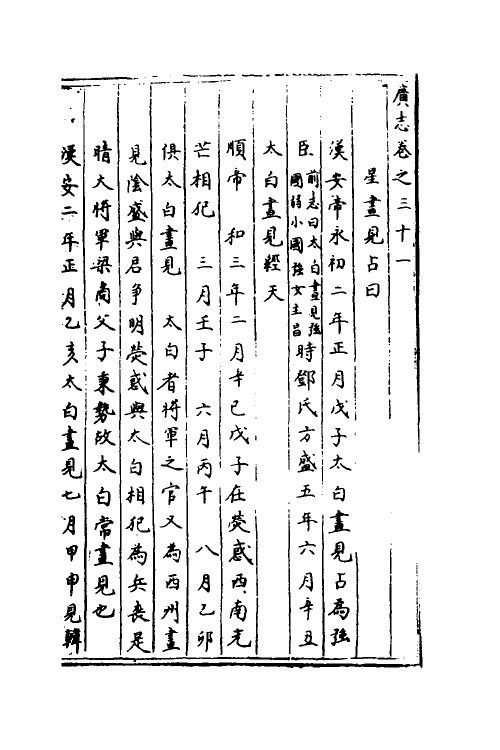 廣志卷之三十一
星晝見占曰
漢安帝永初二年正月戊子太白晝見占為強
臣前志曰太白晝見強國弱小國強女主昌時鄧氏方盛五年六月辛丑
太白晝見經天
順帝 和三年二月辛巳戊子在熒惑西南光
芒相犯 三月壬子 六月丙午 八月乙卯
俱太白晝見 太白者將軍之官又為西州晝
見陰盛與君爭明熒惑與太白相犯為兵喪是
時大將軍梁商父子秉勢故太白常晝見也
漢安二年正月乙亥太白晝見七月甲申見韓